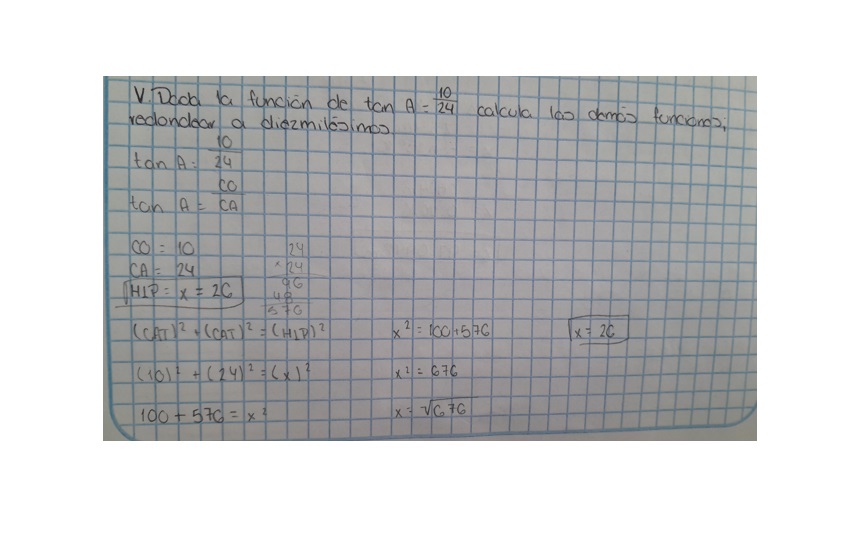 V. Dada la función de tan A = 10/24 calcula las demás funciones,
redondear a diezmilésimos
tan A = 10/24
tan A = CO/CA
CO = 10
CA = 24
HIP = x = 26
24
x 24
96
48
576
(CAT)² + (CAT)² = (HIP)²
(10)² + (24)² = (x)²
100 + 576 = x²
x² = 100 + 576
x² = 676
x = √676
x = 26